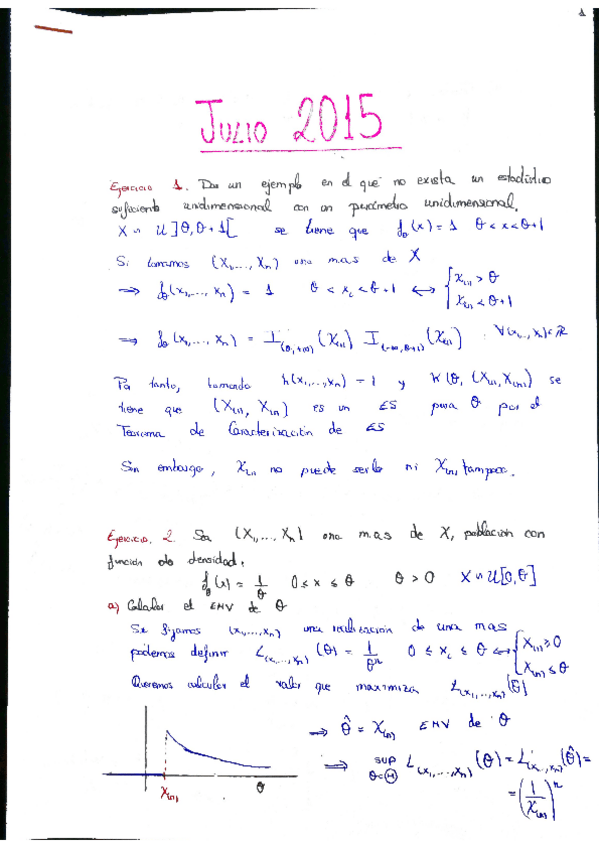 1
JULIO 2015
Ejercicio 1. Da un ejemplo en el que no exista un estadístico
suficiente unidimensional con un parámetro unidimensional.
X ~ U]θ, θ+1[ se tiene que f_θ(x) = 1 θ < x < θ+1
Si tomamos (X₁, ..., Xₙ) una mas de X
⟹ f_θ(x₁, ..., xₙ) = 1 θ < xᵢ < θ+1 ⟷ { X₍₁₎ > θ
X₍ₙ₎ < θ+1
⟹ f_θ(x₁, ..., xₙ) = I_(θ,+∞)(X₍₁₎) I_(-∞,θ+1)(X₍ₙ₎) ∀(x₁, ..., xₙ) ∈ ℝ
Por tanto, tomando h(x₁, ..., xₙ) = 1 y K(θ, (X₍₁₎, X₍ₙ₎) se
tiene que (X₍₁₎, X₍ₙ₎) es un ES para θ por el
Teorema de Caracterización de ES
Sin embargo, X₍₁₎ no puede serlo ni X₍ₙ₎ tampoco.
Ejercicio 2. Sea (X₁, ..., Xₙ) una mas de X, población con
función de densidad.
f_θ(x) = 1/θ 0 ≤ x ≤ θ θ > 0 X ~ U[0, θ]
a) Calcular el EMV de θ
Si fijamos (x₁, ..., xₙ) una realización de una mas
podemos definir L_(x₁, ..., xₙ)(θ) = 1/θⁿ 0 ≤ xᵢ ≤ θ ⟷ { X₍₁₎ ≥ 0
X₍ₙ₎ ≤ θ
Queremos calcular el valor que maximiza L_(x₁, ..., xₙ)(θ)
⟹ θ̂ = X₍ₙ₎ EMV de θ
⟹ sup_θ∈Θ L_(x₁, ..., xₙ)(θ) = L_(x₁, ..., xₙ)(θ̂) =
= (1/X₍ₙ₎)ⁿ
X₍ₙ₎ θ